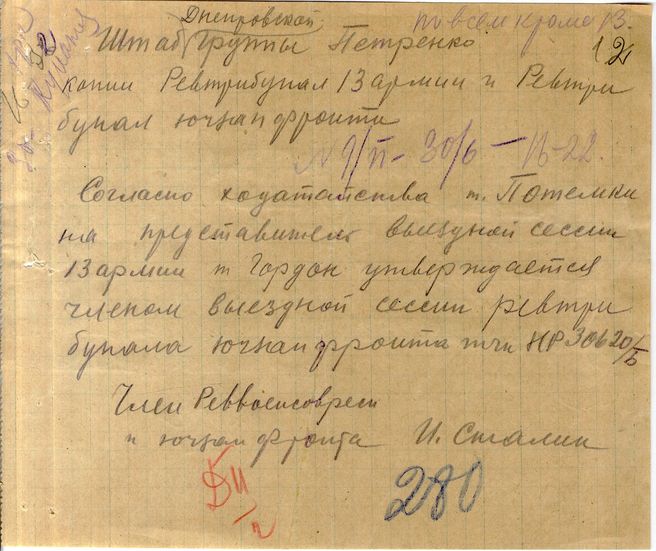 Днепровской по всем кромѣ 13.
Штаб Группы Петренко 12
копии Ревтрибунал 13 армии и Ревтри
бунал южзапфронта
N 9/П – 30/6 – 16-22.
Согласно ходатайства т. Потемки
на представителя выездной сессии
13 армии т Гордон утверждается
членом выездной сессии ревтри
бунала южзапфронта тчк НР 306 20/
Член Реввоенсоврес
п южзапфронта И. Сталин
280